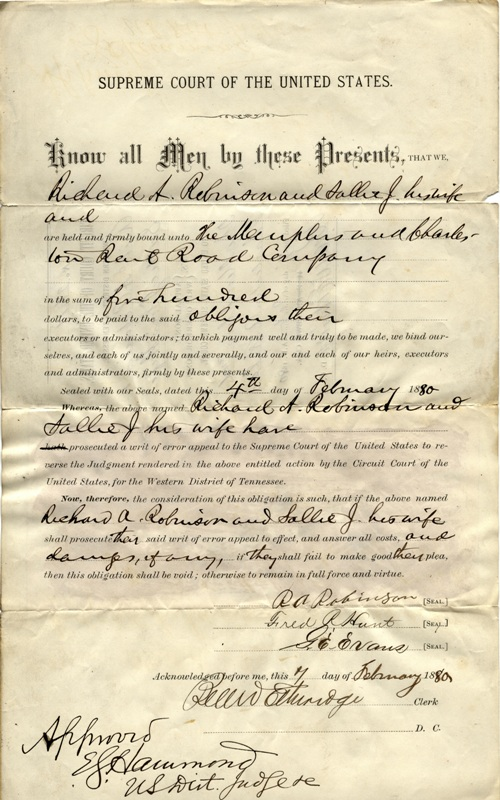 SUPREME COURT OF THE UNITED STATES.
Know all Men by these Presents, THAT WE,
Richard A. Robinson and Sallie J. his wife
and
are held and firmly bound unto The Memphis and Charles-
ton Rail Road Company
in the sum of five hundred
dollars, to be paid to the said obligors their
executors or administrators; to which payment well and truly to be made, we bind our-
selves, and each of us jointly and severally, and our and each of our heirs, executors
and administrators, firmly by these presents.
Sealed with our Seals, dated this 4th day of February 1880
Whereas, the above named Richard A. Robinson and
Sallie J his wife have
hath prosecuted a writ of error appeal to the Supreme Court of the United States to re-
verse the Judgment rendered in the above entitled action by the Circuit Court of the
United States, for the Western District of Tennessee.
Now, therefore, the consideration of this obligation is such, that if the above named
Richard A. Robinson and Sallie J. his wife
shall prosecute their said writ of error appeal to effect, and answer all costs, and
damges, if any, if they shall fail to make good their plea,
then this obligation shall be void; otherwise to remain in full force and virtue.
R A Robinson [SEAL]
Fred R Hunt [SEAL]
G. E. Evans [SEAL]
Acknowledged before me, this 7 day of February 1880
Etheridge Clerk
D. C.
Approved
E S Hammond
US Dist. Judge